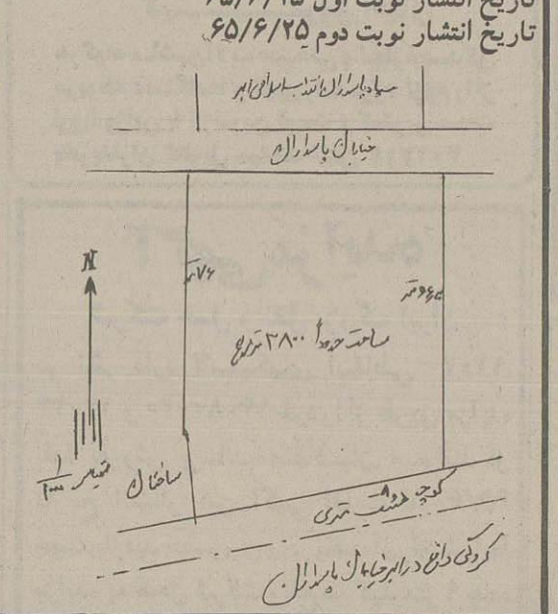 تاریخ انتشار نوبت اول
تاریخ انتشار نوبت دوم ۶۵/۶/۲۵
سپاه پاسداران انقلاب اسلامی ابهر
خیابان پاسداران
N
۷۶ متر
متر
مساحت حدوداً ۳۸۰۰ متر مربع
مقیاس ۱/۱۰۰۰
ساختمان
کوچه هشت متری
کروکی واقع در ابهر خیابان پاسداران